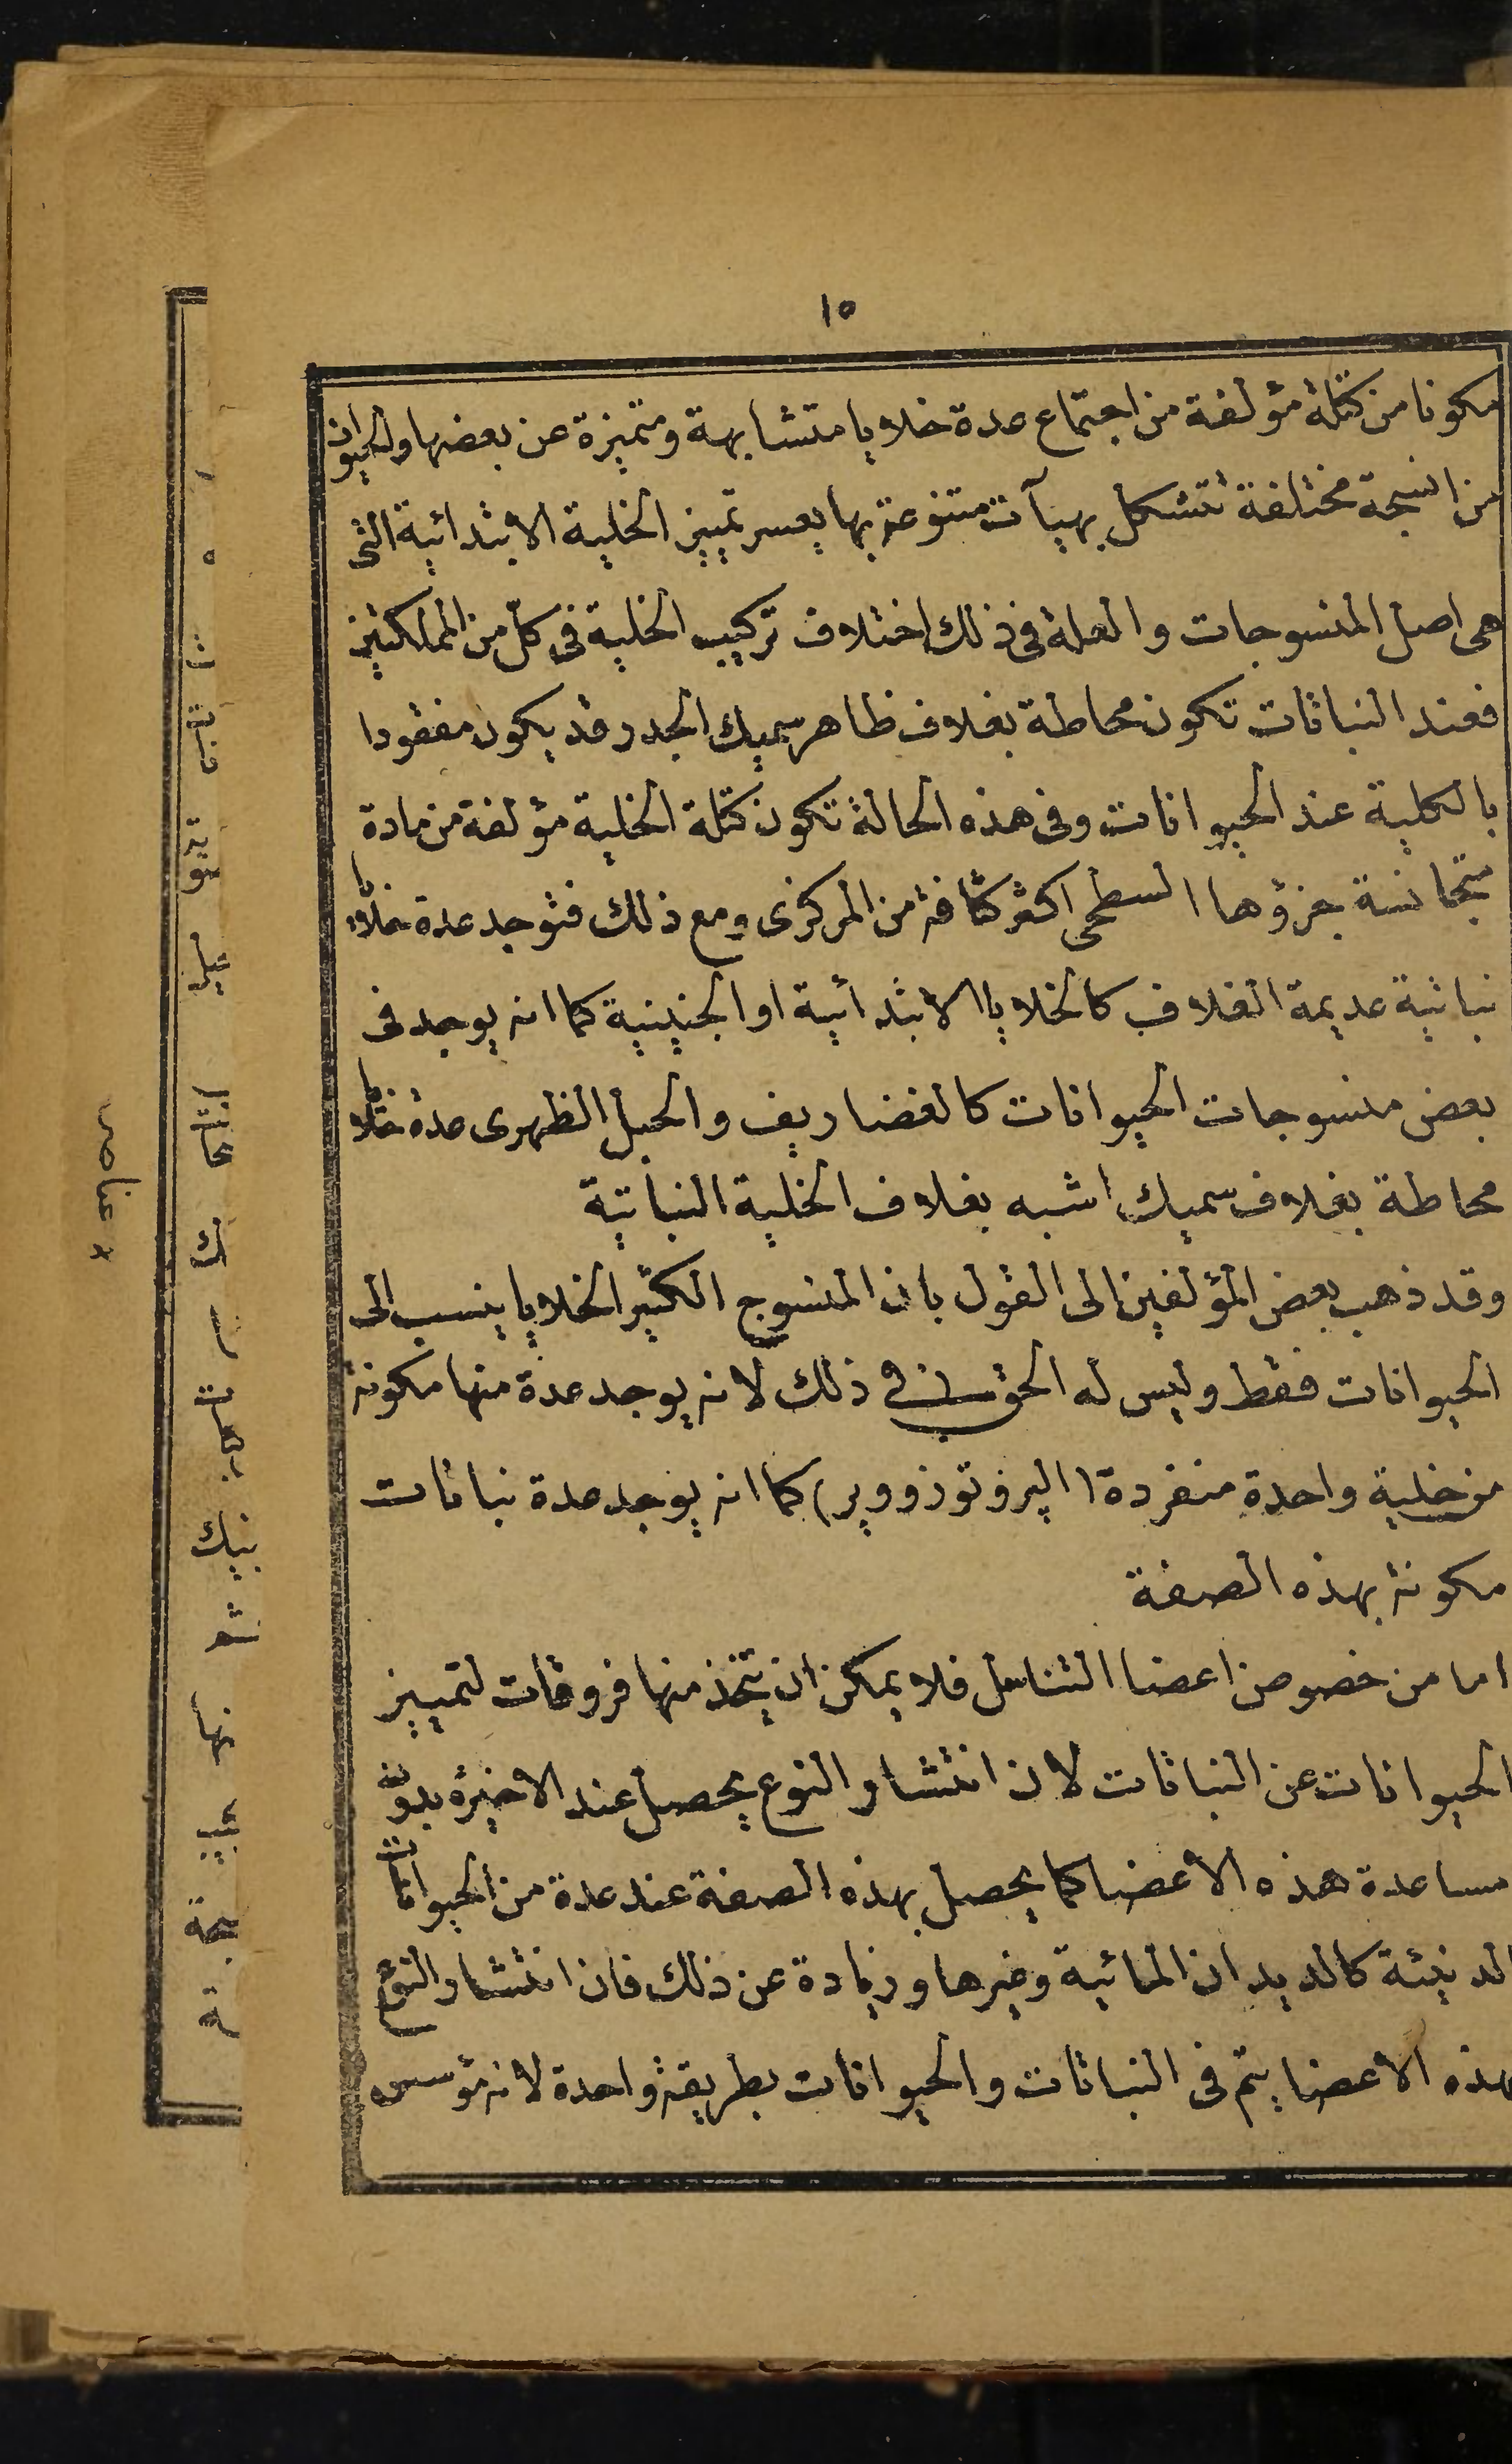 ١٥
مكونا من كتلة مؤلفة من اجتماع عدة خلايا متشابهة ومتميزة عن بعضها والحيوان
من انسجة مختلفة تتشكل بهيآت متنوعة بها يعسر تمييز الخلية الابتدائية التى
هى اصل المنسوجات والعلة فى ذلك اختلاف تركيب الخلية فى كلّ من المملكتين
فعند النباتات تكون محاطة بغلاف ظاهر سميك الجدر وقد يكون مفقودا
بالكلية عند الحيوانات وفى هذه الحالة تكون كتلة الخلية مؤلفة من مادة
متجانسة جزؤها السطحى اكثر كثافة من المركزى ومع ذلك فتوجد عدة خلايا
نباتية عديمة الغلاف كالخلايا الابتدائية او الجنينية كما انه يوجد فى
بعض منسوجات الحيوانات كالغضاريف والحبل الظهرى عدة خلايا
محاطة بغلاف سميك اشبه بغلاف الخلية النباتية
وقد ذهب بعض المؤلفين الى القول بان المنسوج الكثير الخلايا ينسب الى
الحيوانات فقط وليس له الحق فى ذلك لانه يوجد عدة منها مكونة
من خلية واحدة منفردة (البروتوزووير) كما انه يوجد عدة نباتات
مكونة بهذه الصفة
اما من خصوص اعضا التناسل فلا يمكن ان يتخذ منها فروقات لتمييز
الحيوانات عن النباتات لان انتشار النوع يحصل عند الاخيرة بدون
مساعدة هذه الاعضا كما يحصل بهذه الصفة عند عدة من الحيوانات
الدنيئة كالديدان المائية وغيرها وزيادة عن ذلك فان انتشار النوع
بهذه الاعضا يتم فى النباتات والحيوانات بطريقة واحدة لانه مؤسس
عناصر